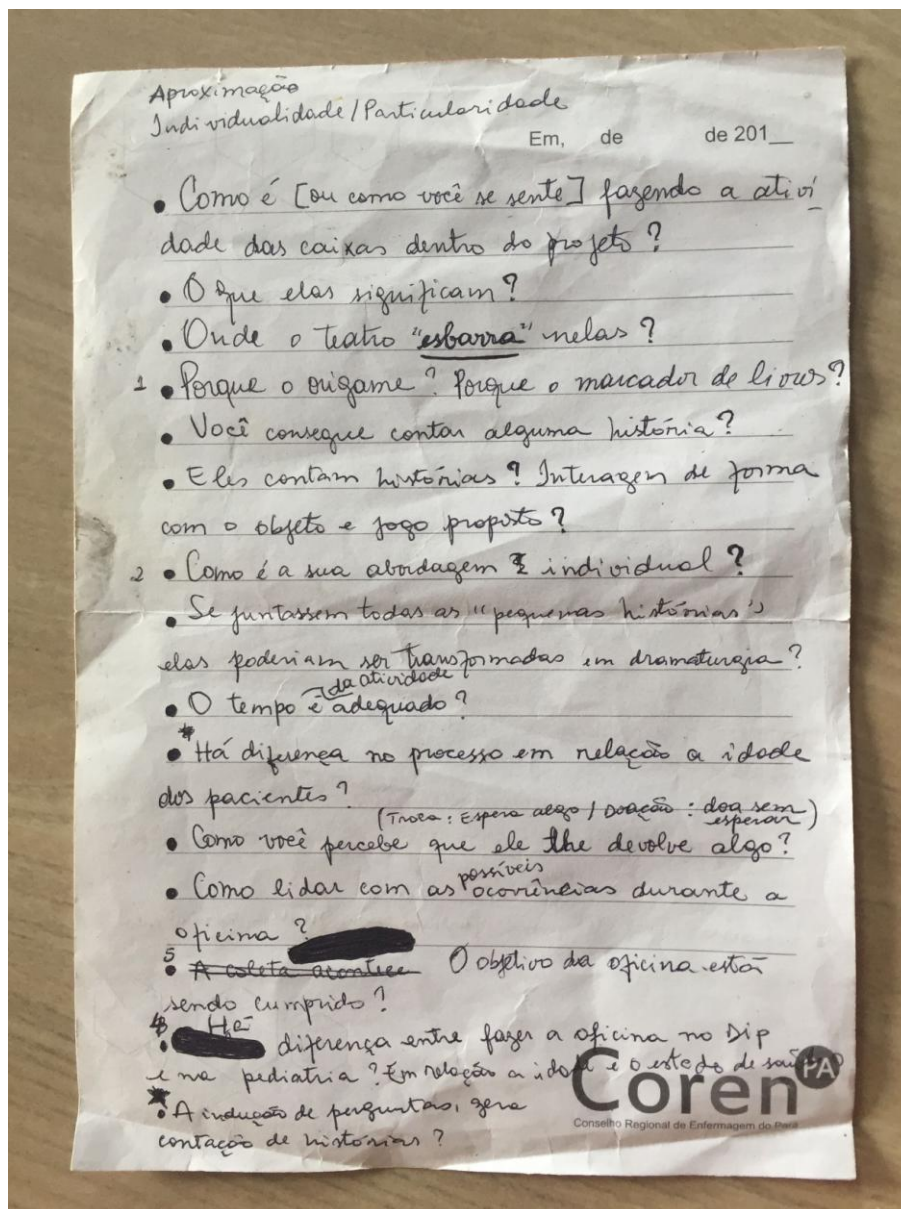 Aproximação
Individualidade/Particularidade
Em, de de 201__
• Como é [ou como você se sente] fazendo a ativi
dade das caixas dentro do projeto?
• O que elas significam?
• Onde o teatro "esbarra" nelas?
1 • Porque o origame? Porque o marcador de livros?
• Você consegue contar alguma história?
• Eles contam histórias? Interagem de forma
com o objeto e jogo proposto?
2 • Como é a sua abordagem individual?
• Se juntassem todas as "pequenas histórias"
elas poderiam ser transformadas em dramaturgia?
da atividade
• O tempo é adequado?
• Há diferença no processo em relação a idade
dos pacientes?
(Troca: Espera algo / Doação: doa sem
esperar)
• Como você percebe que ele lhe devolve algo?
possíveis
• Como lidar com as ocorrências durante a
oficina?
5
• A coleta acontece O objetivo da oficina está
sendo cumprido?
Há
• diferença entre fazer a oficina no Dip
e na pediatria? Em relação a idade e o estado de saúde
• A indução de perguntas, gera
contação de histórias?
Coren PA
Conselho Regional de Enfermagem do Pará